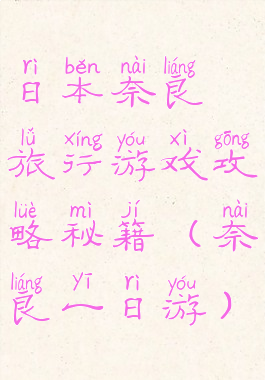 rì běn nài liáng
日本奈良
lǚ xíng yóu xì gōng
旅行游戏攻
lüè mì jí nài
略秘籍（奈
liáng yī rì yóu
良一日游）